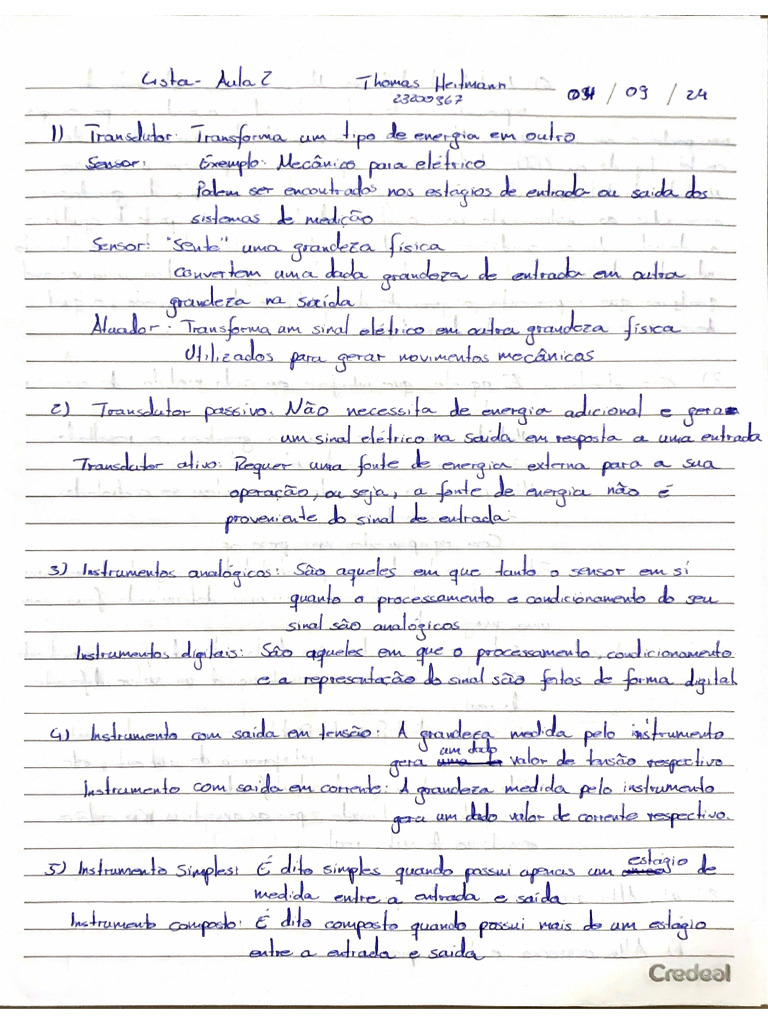 Lista - Aula 2 Thomas Heitmann 04/09/24
23200367
1) Transdutor: Transforma um tipo de energia em outro
Sensor: Exemplo: Mecânico para elétrico
Podem ser encontrados nos estágios de entrada ou saída dos
sistemas de medição
Sensor: "Sente" uma grandeza física
Convertem uma dada grandeza de entrada em outra
grandeza na saída
Atuador: Transforma um sinal elétrico em outra grandeza física
Utilizados para gerar movimentos mecânicos
2) Transdutor passivo: Não necessita de energia adicional e gera
um sinal elétrico na saída em resposta a uma entrada
Transdutor ativo: Requer uma fonte de energia externa para a sua
operação, ou seja, a fonte de energia não é
proveniente do sinal de entrada
3) Instrumentos analógicos: São aqueles em que tanto o sensor em sí
quanto o processamento e condicionamento do seu
sinal são analógicos
Instrumentos digitais: São aqueles em que o processamento, condicionamento
e a representação do sinal são feitos de forma digital
4) Instrumento com saída em tensão: A grandeza medida pelo instrumento
gera um dado valor de tensão respectivo
Instrumento com saída em corrente: A grandeza medida pelo instrumento
gera um dado valor de corrente respectivo.
5) Instrumento Simples: É dito simples quando possui apenas um estágio de
medida entre a entrada e saída
Instrumento composto: É dito composto quando possui mais de um estágio
entre a entrada e saída
Credeal